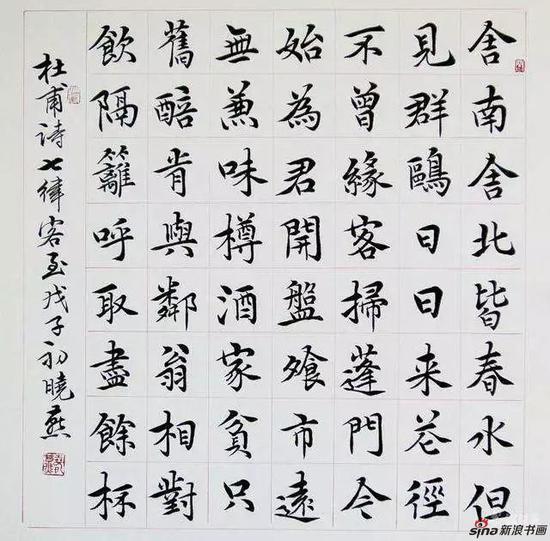 舍南舍北皆春水但
見群鷗日日来花徑
不曾緣客掃蓬門今
始為君開盤飱市遠
無兼味樽酒家貧只
舊醅肯與鄰翁相對
飲隔籬呼取盡餘杯
杜甫诗七律客至戊子初曉燕
sina新浪书画